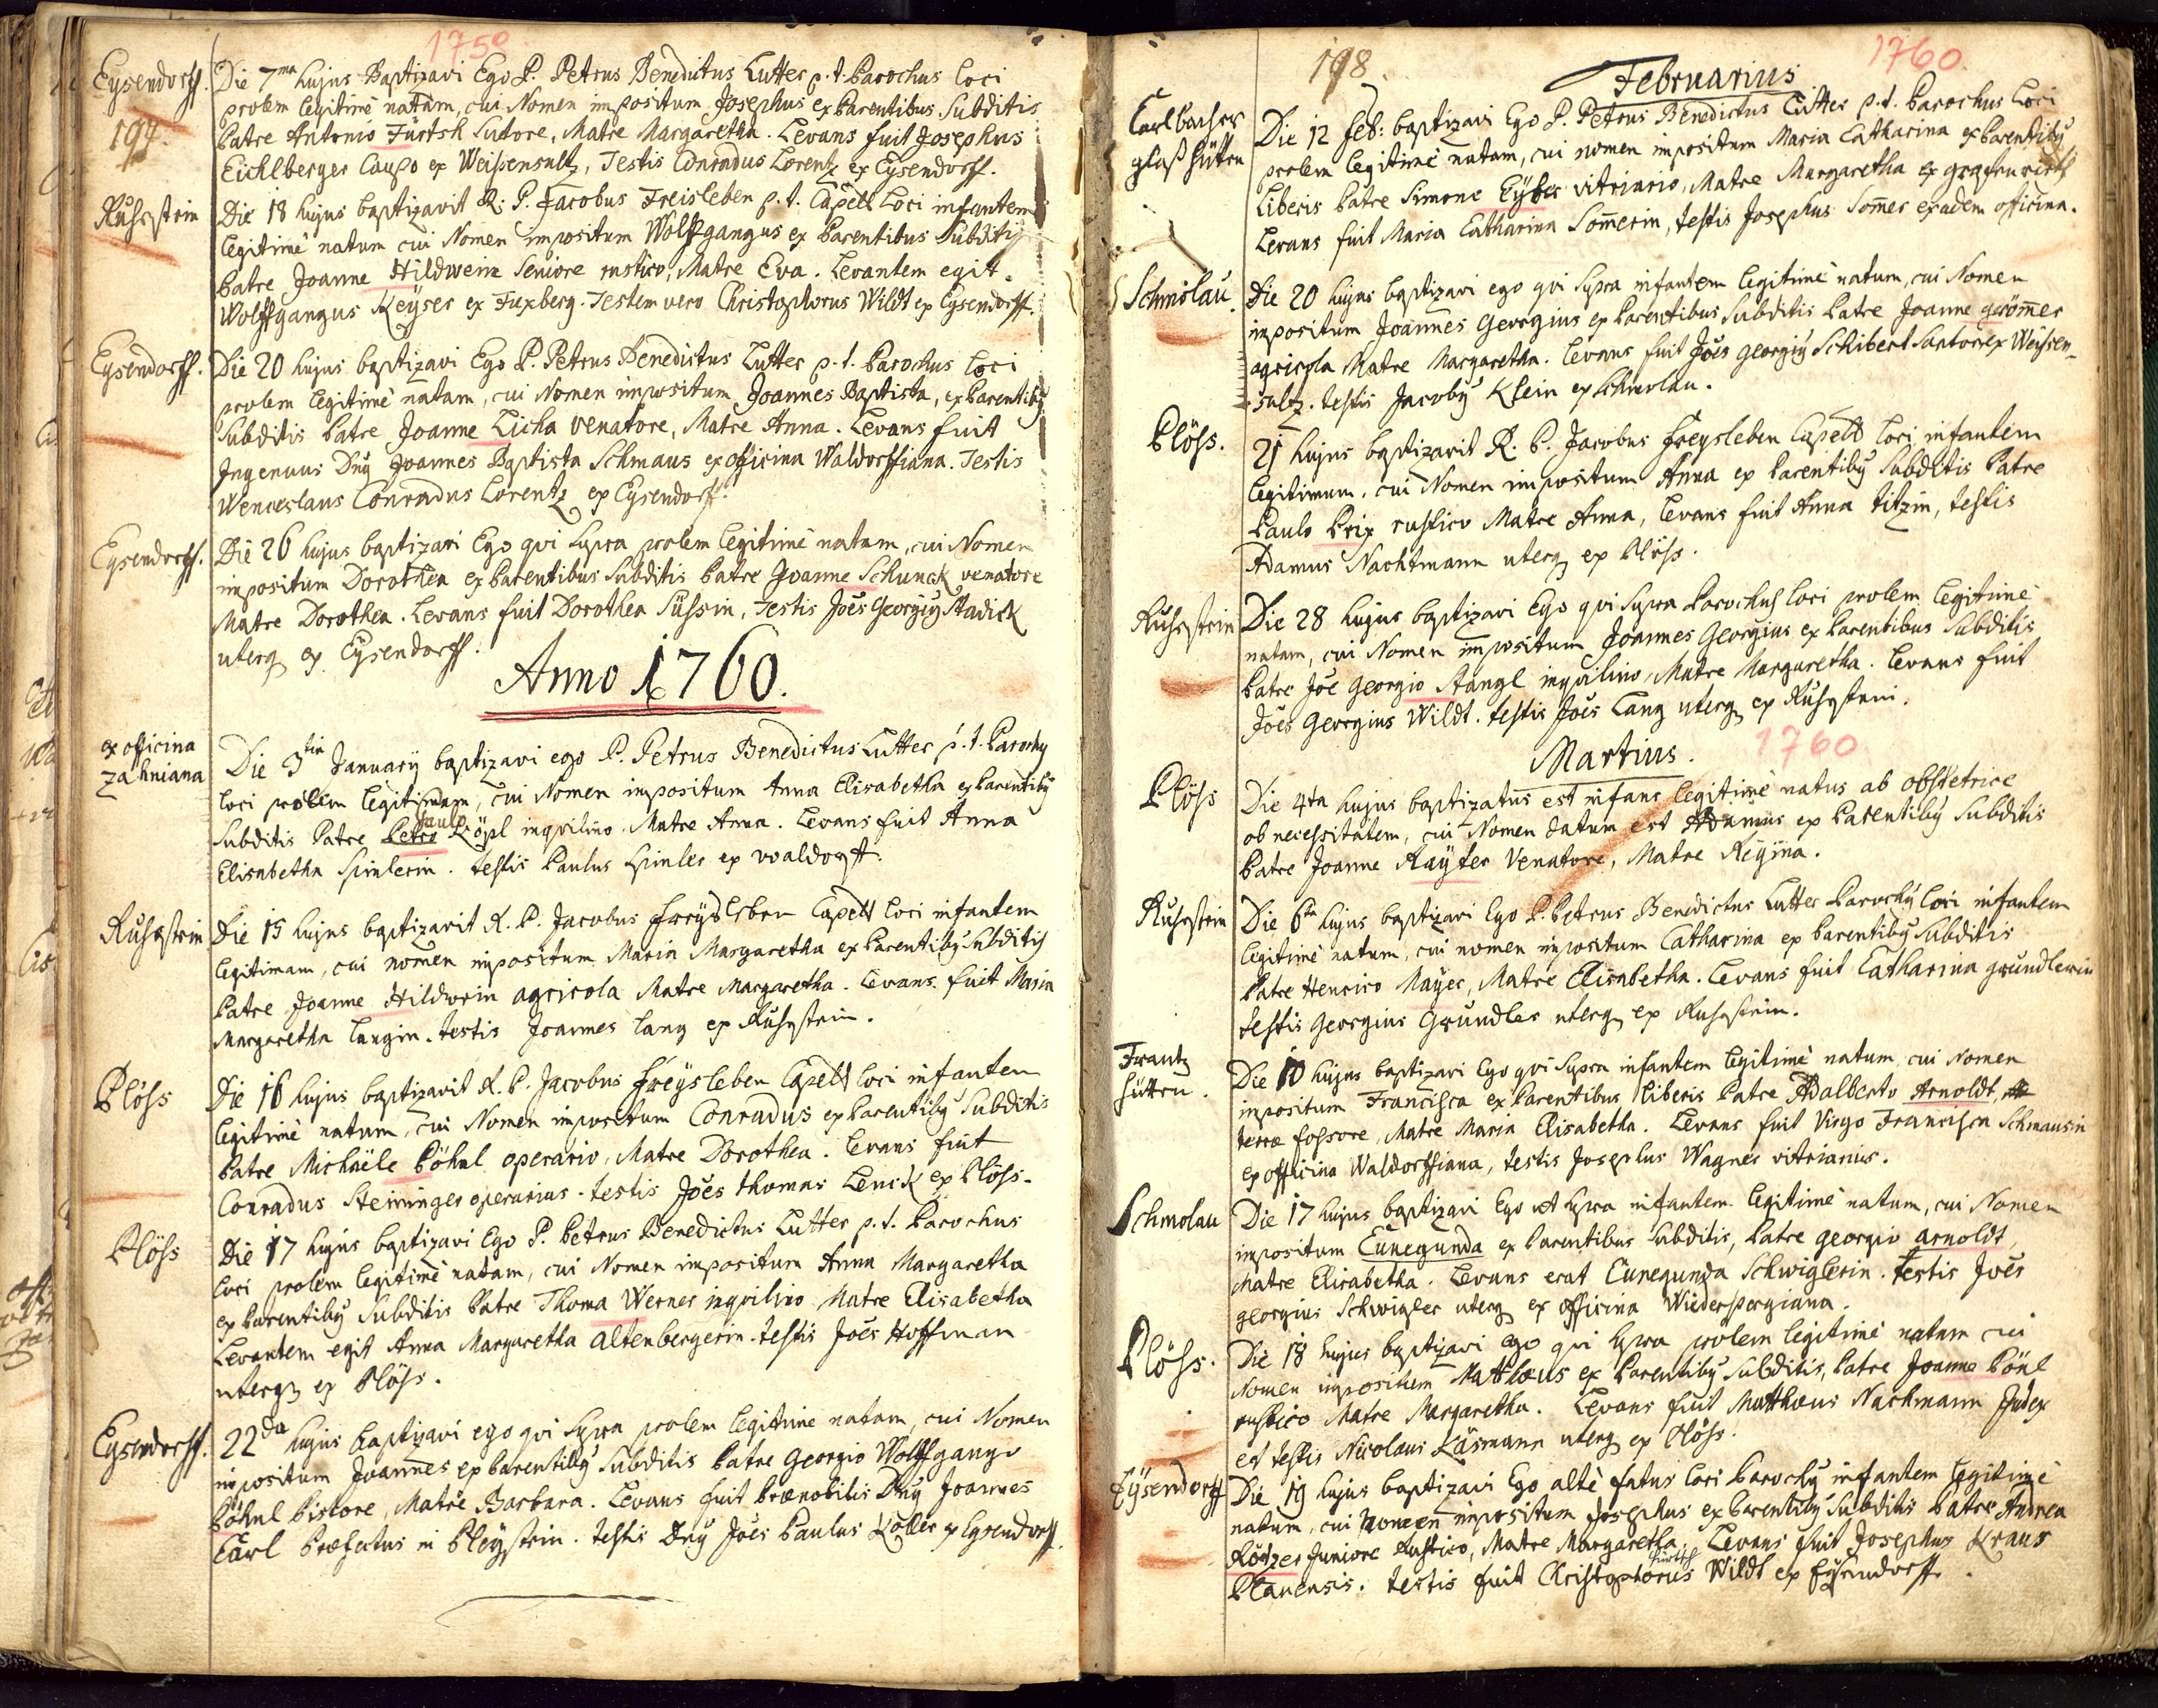 1750
Eysendorff.
197.
Die 7ma hujus Baptizavi Ego P. Petrus Benedictus Lutter p. t. Parochus loci
prolem legitimè natam, cui Nomen impositum Josephus ex Parentibus Subditis
Patre Antonio Fürtsh Sutore, Matre Margaretha. Levans fuit Josephus
Eichlberger Caupo ex Weissensultz, Testis Conradus Lorentz ex Eysendorff.
Ruhestein
Die 18 hujus baptizavit R. P. Jacobus Freisleben p. t. Capell loci infantem
legitimè natum cui Nomen impositum Wolffgangus ex Parentibus Subditis
Patre Joanne Hildwein Seniore rustico, Matre Eva. Levantem egit
Wolffgangus Keyser ex Fuxberg. Testem vero Christophorus Wildt ex Eysendorff.
Eysendorff.
Die 20 hujus baptizavi Ego P. Petrus Benedictus Lutter p. t. Parochus loci
prolem legitimè natam, cui Nomen impositum Joannes Baptista, ex Parentibus
Subditis Patre Joanne Licha venatore, Matre Anna. Levans fuit
Ingenuus Dnus Joannes Baptista Schmaus ex officina Waldorffiana. Testis
Wenceslaus Conradus Lorentz ex Eysendorf.
Eysendorff.
Die 26 hujus baptizavi Ego qui supra prolem legitimè natam, cui Nomen
impositum Dorothea ex Parentibus Subditis Patre Joanne Schunck venatore
Matre Dorothea. Levans fuit Dorothea Süssin, Testis Joes Georgius Stadick
uterq ex Eysendorff.
Anno 1760.
ex officina
zahniana
Die 3tia January baptizavi ego P. Petrus Benedictus Lutter p. t. Parochus
loci prolem legitimam, cui Nomen impositum Anna Elisabetha ex Parentibus
Paulo
Subditis Patre Petro Köpl inquilino. Matre Anna. Levans fuit Anna
Elisabetha Spinlerin. testis Paulus Spinler ex
Ruhestein
Die 15 hujus baptizavit R. P. Jacobus Freysleben Capell loci infantem
legitimam, cui nomen impositum Maria Margaretha ex Parentibus Subditis
Patre Joanne Hildwein agricola Matre Margaretha. Levans fuit Maria
Margaretha Langin. testis Joannes Lang ex Ruhestein.
Plöss
Die 16 hujus baptizavit R. P. Jacobus Freysleben Capell loci infantem
legitimè natum, cui Nomen impositum Conradus ex Parentibus Subditis
Patre Michaële Pöhnl operario, Matre Dorothea. Levans fuit
Conradus Steininger operarius. testis Joes thomas Lenck ex Plöss.
Plöss
Die 17 hujus baptizavi Ego P. Petrus Benedictus Lutter p. t. Parochus
loci prolem legitimè natam, cui Nomen impositum Anna Margaretha
ex Parentibus Subditis Patre Thoma Werner inquilino Matre Elisabetha
Levantem egit Anna Margaretha altenbergerin. testis Joes Hoffman
uterq ex Plöss.
Eysendorff.
22da hujus baptizavi ego qui supra prolem legitimè natam, cui Nomen
impositum Joannes ex Parentibus Subditis Patre Georgio Wolffgango
Pöhnl Pistore, Matre Barbara. Levans fuit Prænobilis Dnus Joannes
Carl Præfectus in Pleystein. testis Dnus Joes Paulus Koller ex Eysendorff.
198.
1760.
Februarius
Carlbacher
glaßhütten
Die 12 feb: baptizavi Ego P. Petrus Benedictus Lutter p. t. Parochus loci
prolem legitimè natam, cui nomen impositum Maria Catharina ex Parentibus
Liberis Patre Simone Eÿber vitriario, Matre Margaretha ex
Levans fuit Maria Catharina Som̄erin, testis Josephus Som̄er ex eadem officina.
Schmolau.
Die 20 hujus baptizavi ego qui supra infantem legitimè natum, cui Nomen
impositum Joannes Georgius ex Parentibus Subditis Patre Joanne gröm̄er
agricola Matre Margaretha. Levans fuit Joes Georgius Schibert Sartor ex Weissen-
sultz. testis Jacobus Klein ex Schmolau.
Plöss.
21 hujus baptizavit R. P. Jacobus Freysleben Capell loci infantem
legitimam. cui Nomen impositum Anna ex Parentibus Subditis Patre
Paulo Prix rustico Matre Anna, Levans fuit Anna titzin, testis
Adamus Nachtmann uterq ex Plöss.
Ruhestein
Die 28 hujus baptizavi Ego qui supra Parochus loci prolem legitimè
natam, cui Nomen impositum Joannes Georgius ex Parentibus Subditis
Patre Joe Georgio Stangl inquilino, Matre Margaretha. Levans fuit
Joes Georgius Wildt. testis Joes Lang uterq ex Ruhestein.
Martius. 1760
Plöss
Die 4ta hujus baptizatus est infans legitimè natus ab obstetrice
ob necessitatem, cui Nomen datum est Adamus ex Parentibus Subditis
Patre Joanne Rayter Venatore, Matre Regina.
Ruhestein
Die 6ta hujus baptizavi Ego P. Petrus Benedictus Lutter Parochus loci infantem
legitimè natum, cui nomen impositum Catharina ex Parentibus Subditis
Patre Henrico Mayer, Matre Elisabetha. Levans fuit Catharina grundlerin
testis Georgius Grundler uterq ex Ruhestein.
Frantz
hütten.
Die 10 hujus baptizavi Ego qui supra infantem legitimè natum cui Nomen
impositum Francisca ex Parentibus liberis Patre Adalberto Arnoldt
terræ fossore, Matre Maria Elisabetha. Levans fuit Virgo Francisca Schmausin
ex officina Waldorffiana, testis Josephus Wagner vitriarius.
Schmolau
Die 17 hujus baptizavi Ego ut supra infantem legitimè natum, cui Nomen
impositum Cunegunda ex Parentibus Subditis, Patre georgio arnoldt,
Matre Elisabetha. Levans erat Cunegunda Schwiglerin. testis Joes
georgius Schwigler uterq ex officina Wiederspergiana.
Plöss.
Die 18 hujus baptizavi ego qui supra prolem legitimè natam cui
Nomen impositum Mathæus ex Parentibus Subditis, Patre Joanne Pönl
rustico Matre Margaretha. Levans fuit Matthæus Nachmann Judex
et testis Nicolaus Käsmann uterq ex Plöss.
Eÿsendorff
Die 19 hujus baptizavi Ego altè fatus loci Parochus infantem legitimè
natum, cui nomen impositum Josephus ex Parentibus Subditis Patre Andrea
Rötzer Juniore Rustico, Matre Margaretha. Levans fuit Josephus Kraus
fürtsch
Planensis. testis fuit Christophorus Wildt ex Eÿsendorff.